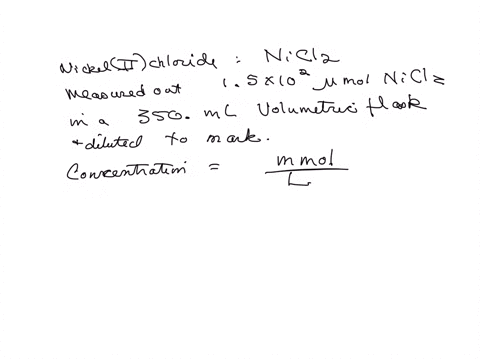 Nickel(II)chloride : NiCl2
measured out 1.5×10² μmol NiCl2
in a 350. mL Volumetric flask
+ diluted to mark.
Concentration = mmol
L